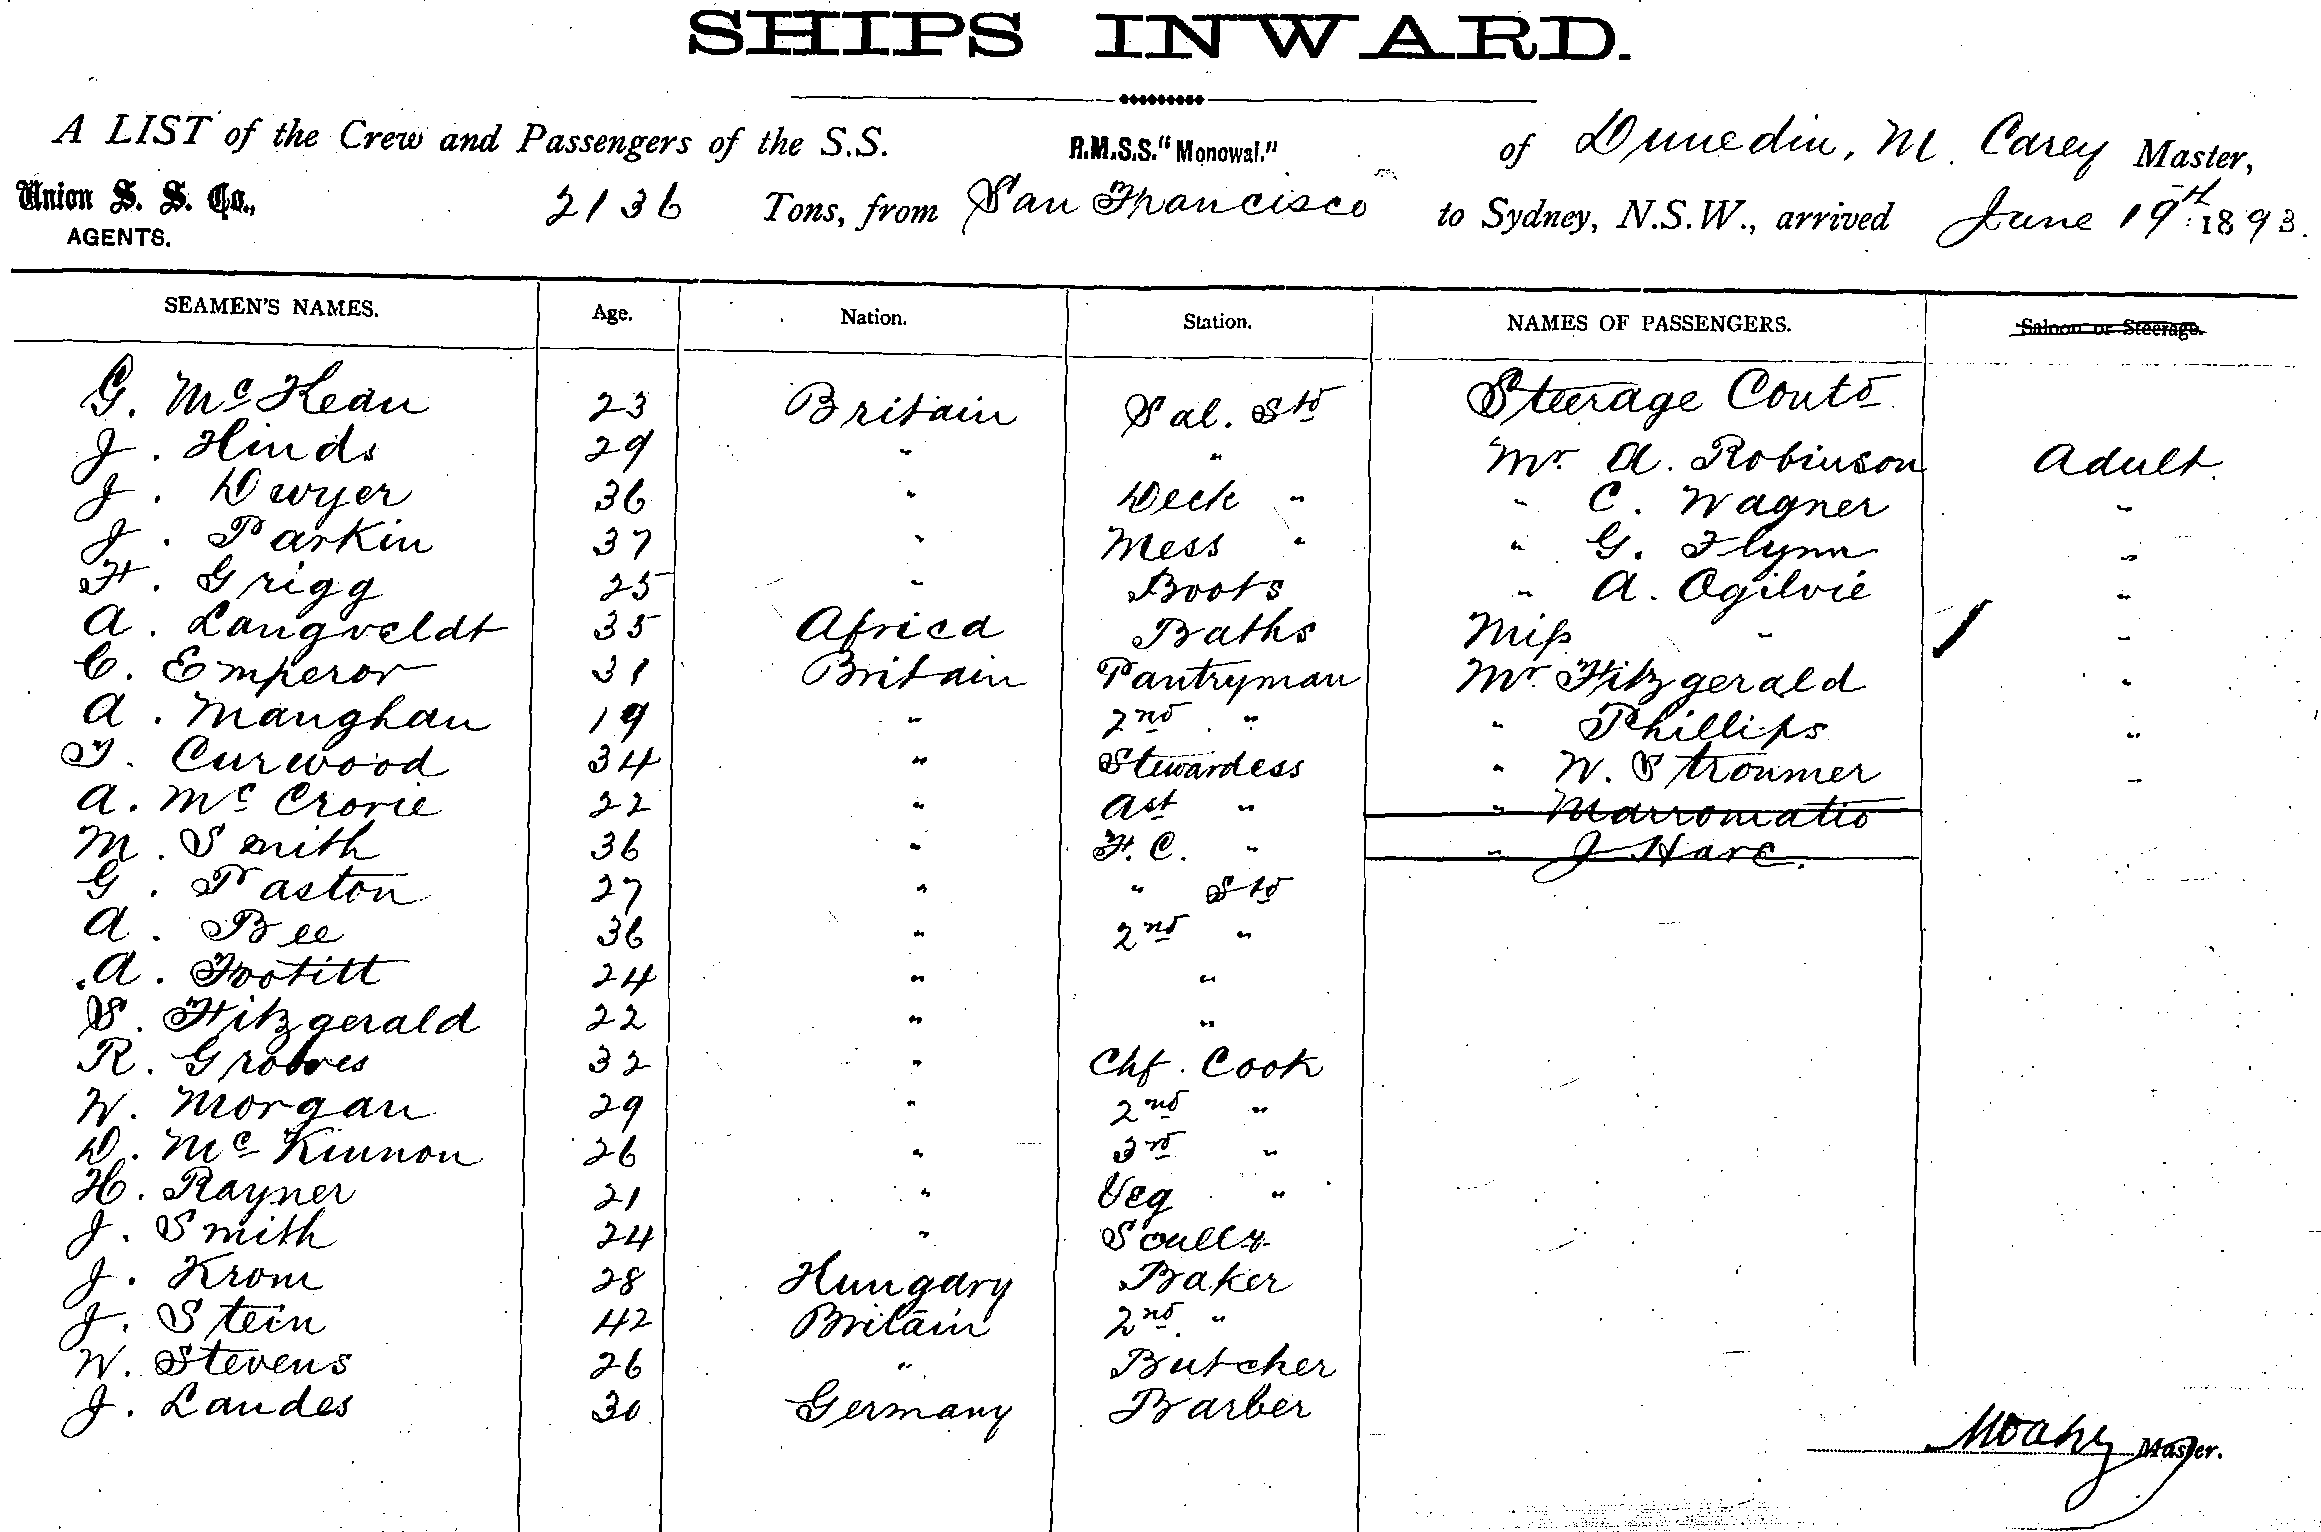 SHIPS INWARD.
A LIST of the Crew and Passengers of the S.S. R.M.S.S. "Monowai." of Dunedin, M. Carey Master,
Union S. S. Co., AGENTS. 2136 Tons, from San Francisco to Sydney, N.S.W., arrived June 19th 1893.
SEAMEN'S NAMES. Age. Nation. Station. NAMES OF PASSENGERS. Saloon or Steerage.
G. McKean 23 Britain Sal. Std Steerage Contd
J. Hinds 29 " " Mr. A. Robinson Adult.
J. Dwyer 36 " Deck " " C. Wagner "
J. Parkin 37 " Mess " " G. Flynn "
F. Grigg 25 " Boots " A. Ogilvie "
A. Langveldt 35 Africa Baths Miss " "
C. Emperor 31 Britain Pantryman Mr. Fitzgerald "
A. Manghan 19 " 2nd " " Phillips "
T. Curwood 34 " Stewardess " W. Stroumer "
A. McCrorie 22 " Ast " " Marromatio
M. Smith 36 " F.C. " " J Hare.
G. Paston 27 " " Std
A. Bee 36 " 2nd "
A. Footitt 24 " "
S. Fitzgerald 22 " "
R. Groves 32 " Chf. Cook
W. Morgan 29 " 2nd "
D. McKinnon 26 " 3rd "
H. Rayner 21 " Veg "
J. Smith 24 "
J. Krom 28 Hungary Baker
J. Stein 42 Britain 2nd. "
W. Stevens 26 " Butcher
J. Landes 30 Germany Barber
Master.